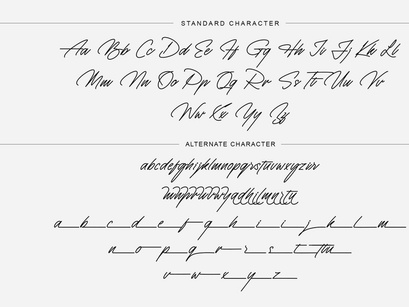 STANDARD CHARACTER
Aa Bb Cc Dd Ee Ff Gg Hh Ii Jj Kk Ll
Mm Nn Oo Pp Qq Rr Ss Tt Uu Vv
Ww Xx Yy Zz
ALTERNATE CHARACTER
abcdefghijklmnopqrstuvwxyzrr
a b c d e f g h i i j k l m
n o p q r s t
v w x y z